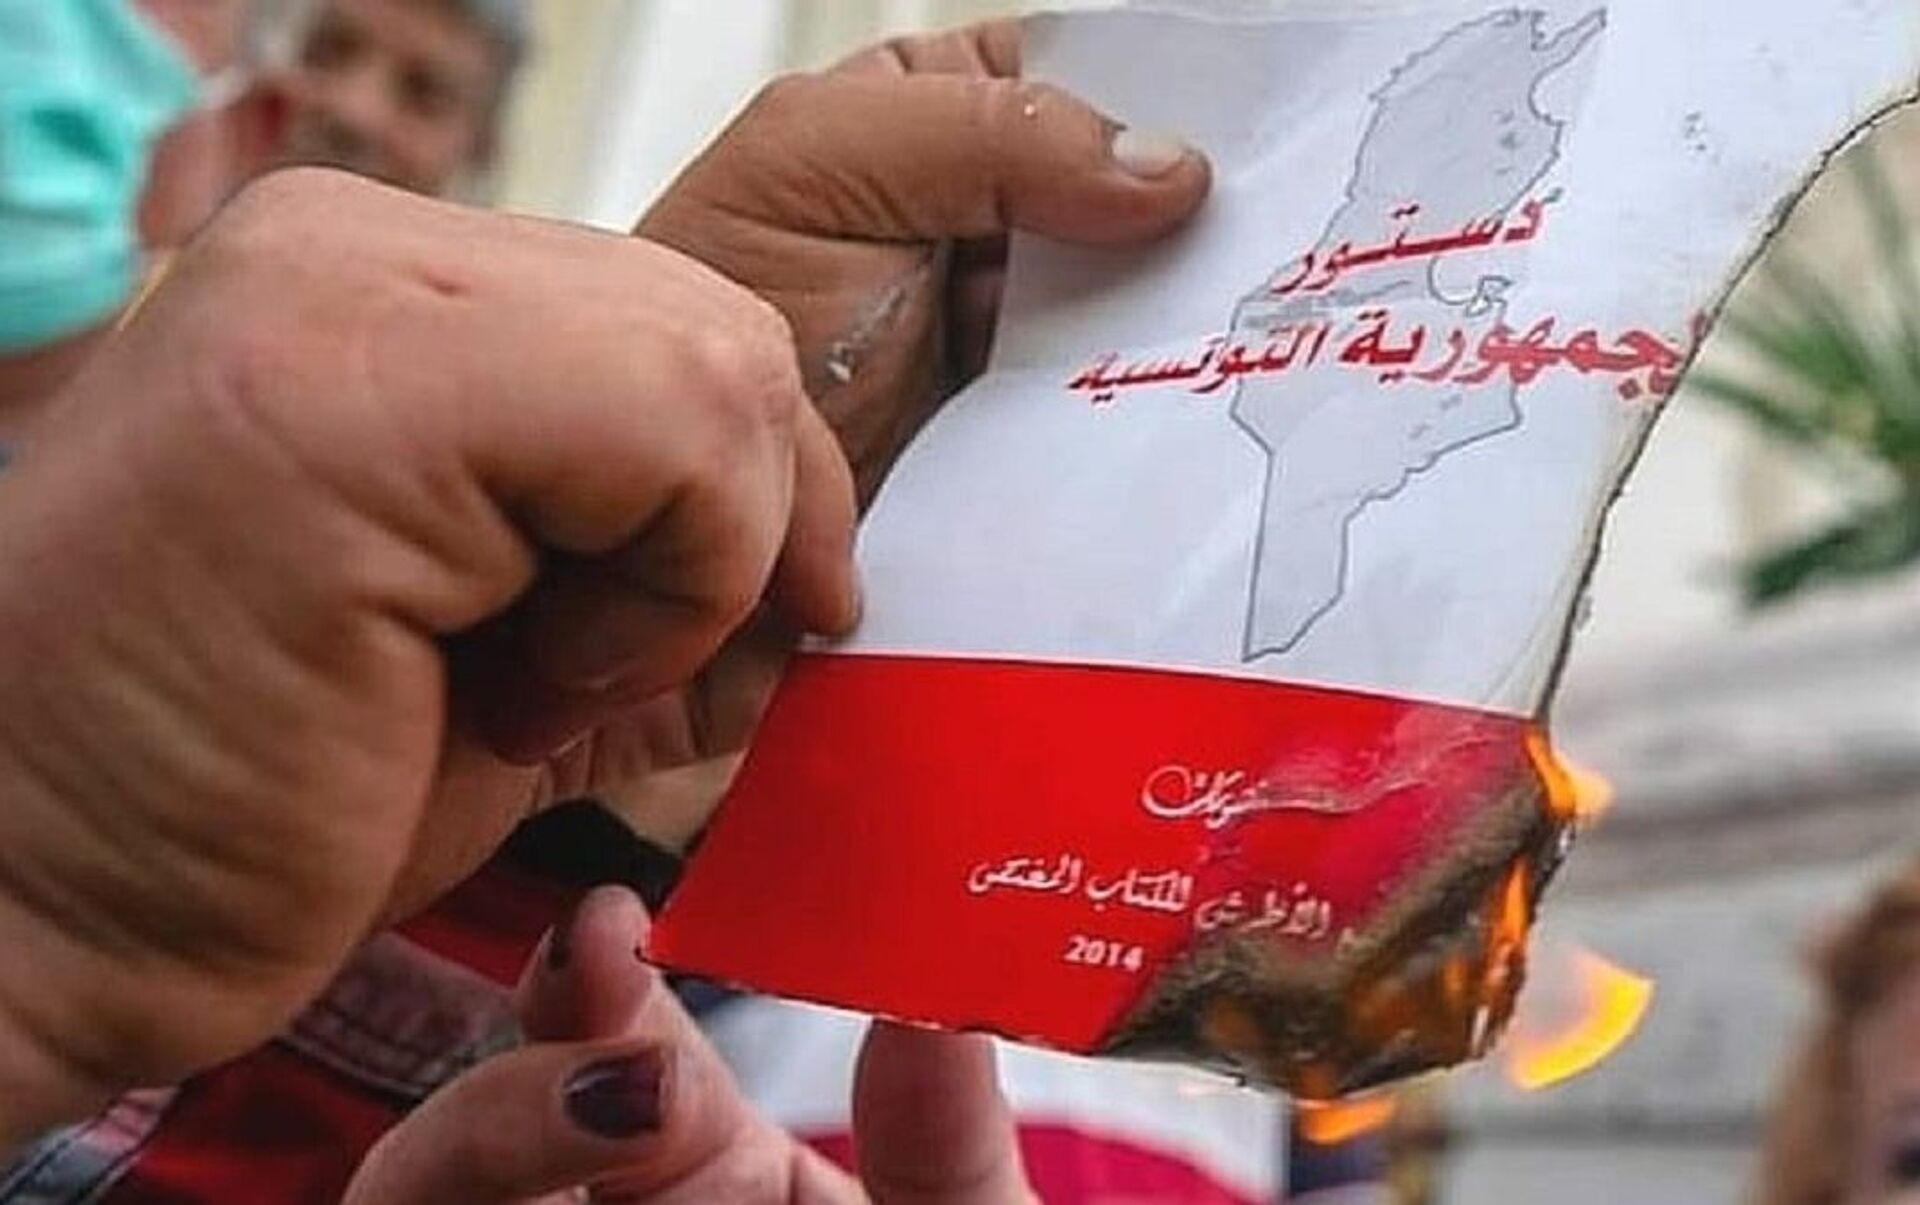 دستور
لجمهورية التونسية
الأطرش للكتاب المختص
2014